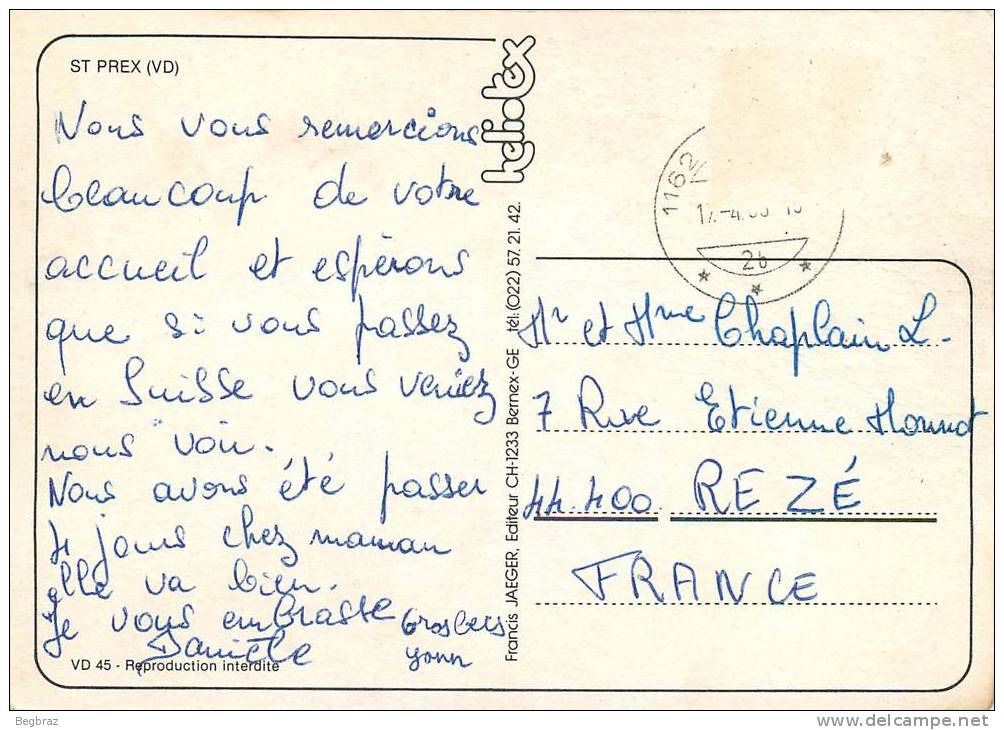 ST PREX (VD)
Nous vous remercions
beaucoup de votre
accueil et espérons
que si vous passez
en Suisse vous veniez
nous voir.
Nous avons été passer
4 jours chez maman
elle va bien.
Je vous embrasse
Danièle
Gros becs
Yann
VD 45 - Reproduction interdite
heliotex
Francis JAEGER, Editeur CH-1233 Bernex-GE tél: (022) 57. 21. 42.
1162
26
Mr et Mme Chaplain L.
7 Rue Etienne
44.400 REZÉ
FRANCE
Begbraz
www.delcampe.net